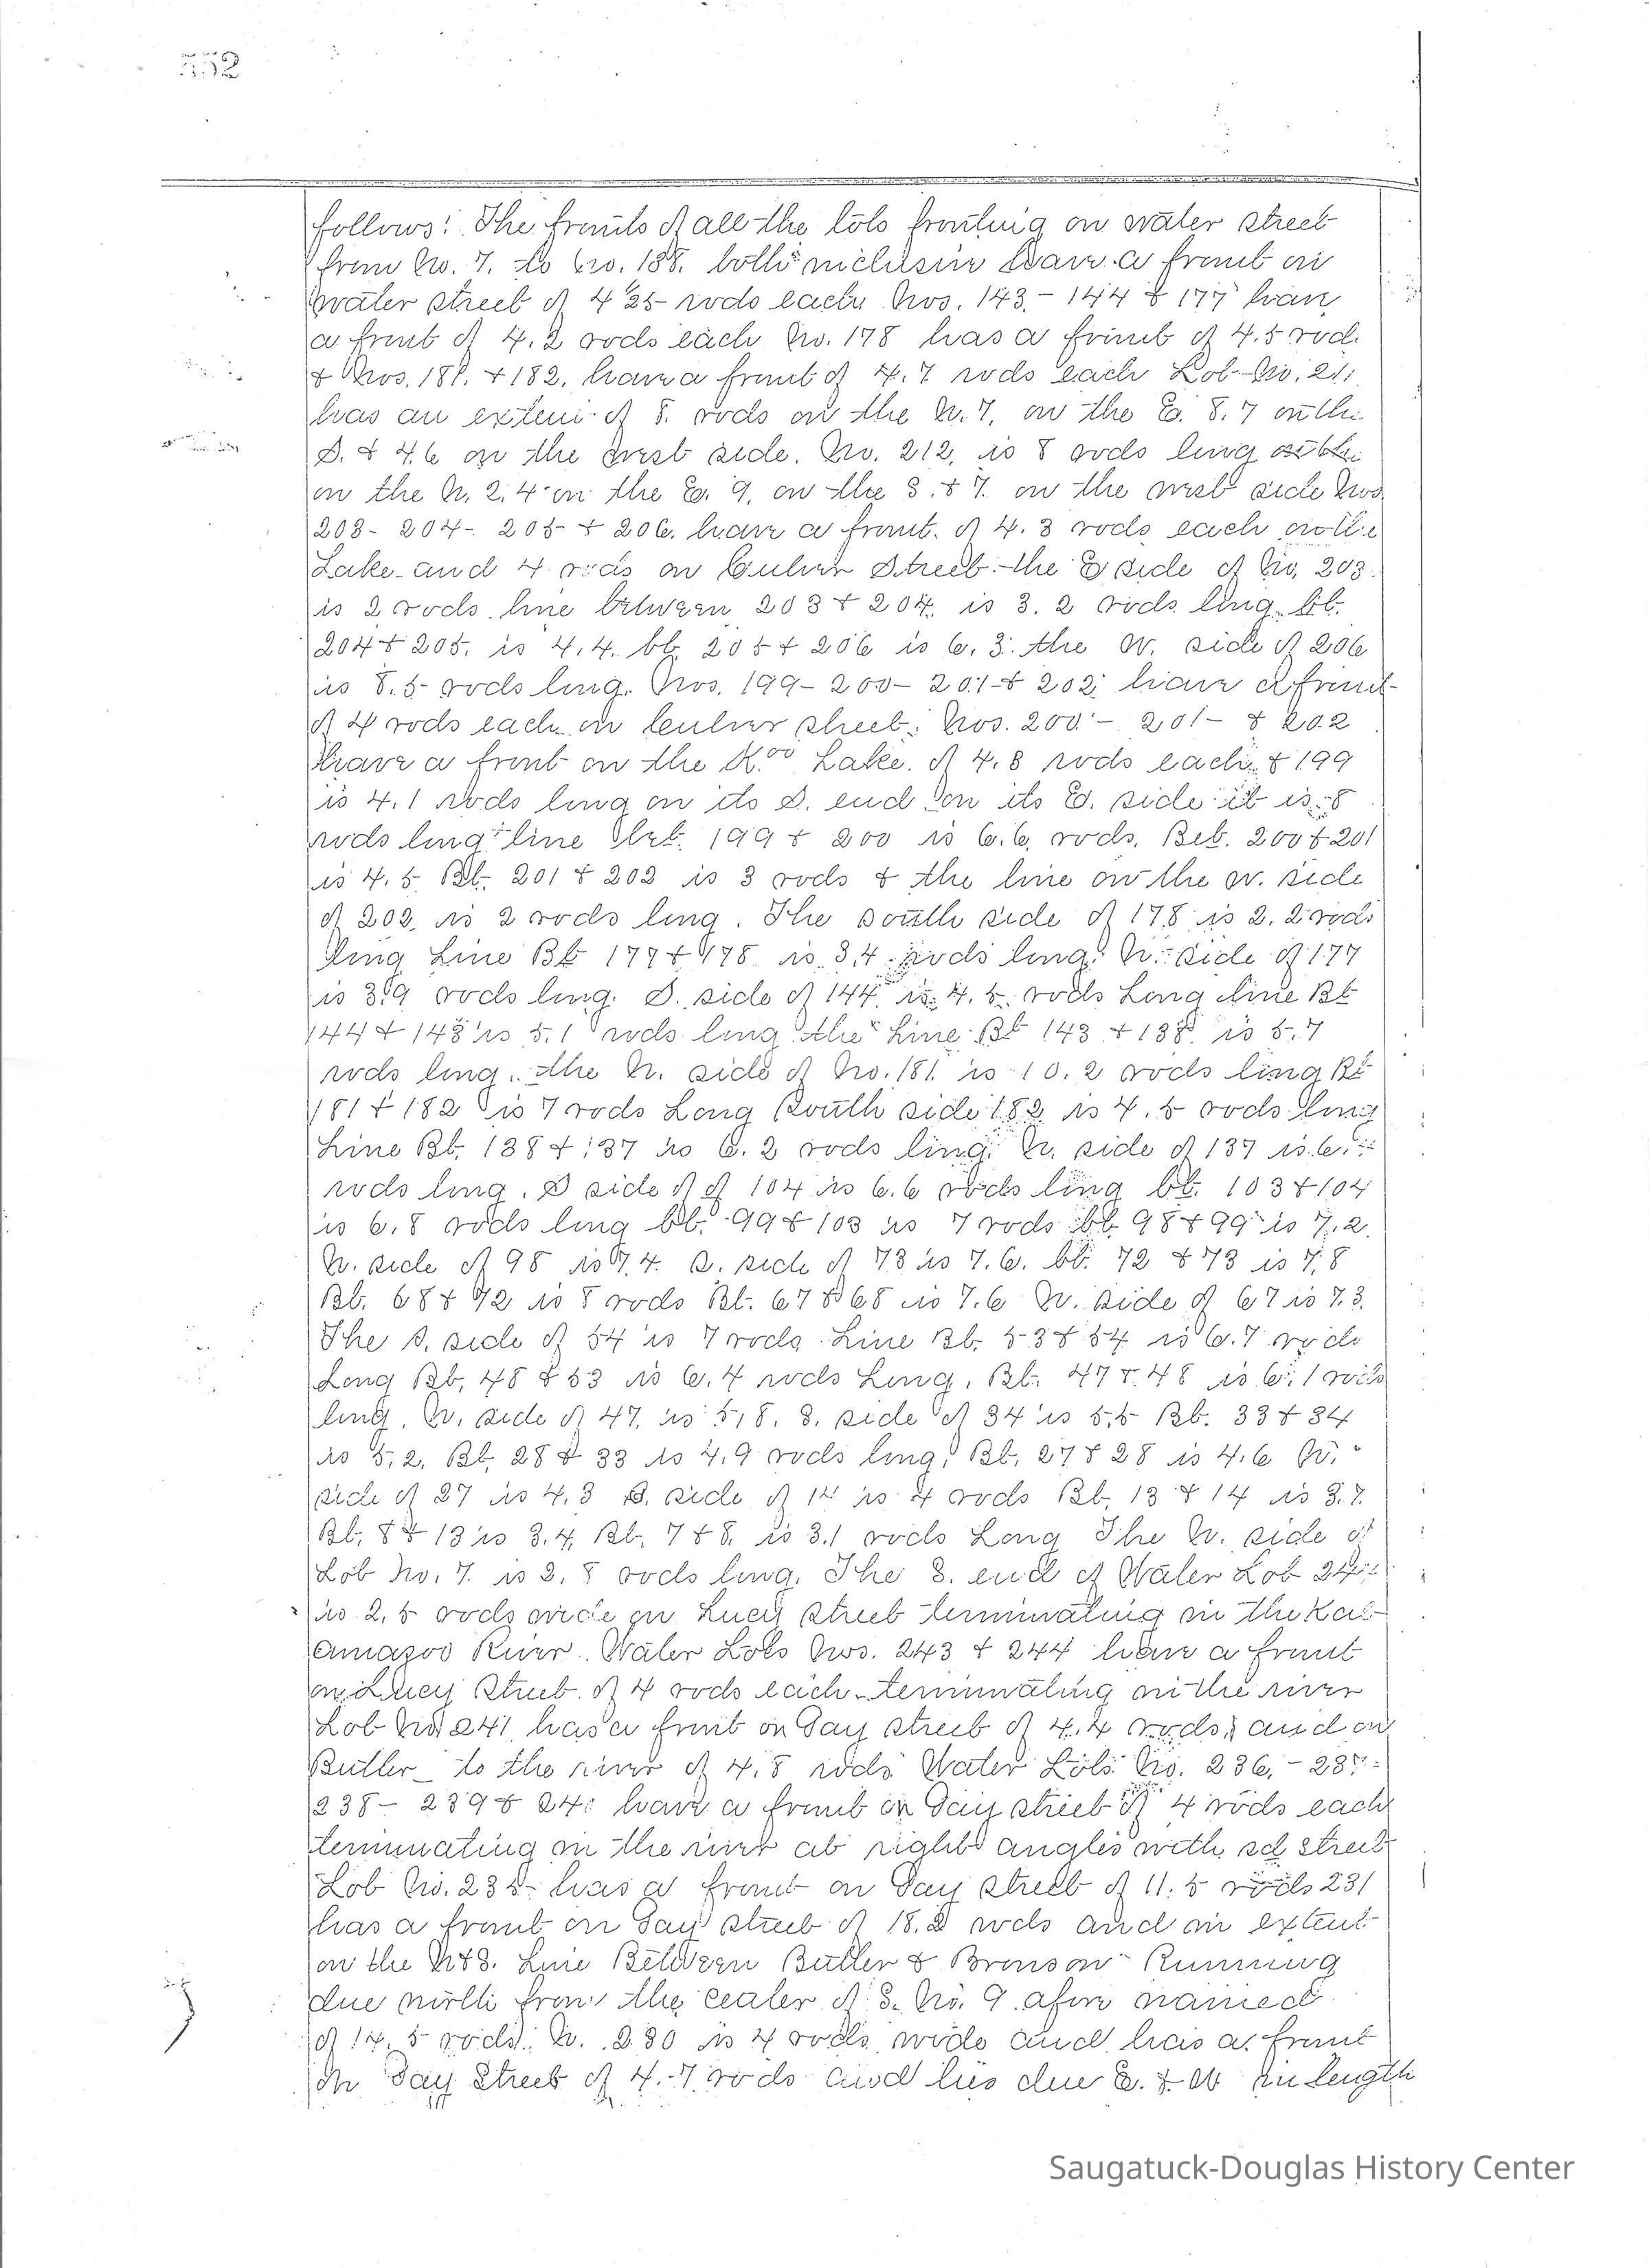 552
follows: The fronts of all the lots fronting on water street
from No. 7. to No. 138. both inclusive have a front on
water street of 4 25 rods each Nos. 143.- 144 & 177 have
a front of 4.2 rods each No. 178 has a front of 4.5 rod.
& Nos. 181. & 182. have a front of 4.7 rods each Lot No. 211
has an extent of 8. rods on the N. 7. on the E. 8.7 on the
S. & 4.6 on the west side. No. 212, is 8 rods long
on the N. 2.4 on the E. 9. on the S. & 7. on the west side Nos
203- 204-. 205 & 206. have a front. of 4.3 rods each on the
Lake and 4 rods on Culver Street. the E side of No. 203.
is 2 rods. line between 203 & 204. is 3.2 rods long. bt.
204 & 205. is 4.4. bt. 205 & 206 is 6.3. the W. side of 206
is 8.5 rods long. Nos. 199- 200- 201- & 202. have a front
of 4 rods each on Culver street. Nos. 200.- 201- & 202
have a front on the K.oo Lake. of 4.8 rods each. & 199
is 4.1 rods long on its S. end on its E. side it is 8
rods long line bet. 199 & 200 is 6.6. rods. Bet. 200 & 201
is 4.5 Bt. 201 & 202 is 3 rods & the line on the w. side
of 202. is 2 rods long. The south side of 178 is 2.2 rods
long Line Bt 177 & 178 is 3.4 rods long. N. side of 177
is 3.9 rods long. S. side of 144 is 4.5. rods Long line Bt
144 & 143 is 5.1 rods long the Line Bt 143 & 138 is 5.7
rods long. the N. side of No. 181. is 10.2 rods long Bt
181 & 182 is 7 rods Long South side 182 is 4.5 rods long
Line Bt. 138 & 137 is 6.2 rods long. N. side of 137 is 6.
rods long. S side of of 104 is 6.6 rods long bt. 103 & 104
is 6.8 rods long bt. 99 & 103 is 7 rods bt. 98 & 99 is 7.2.
N. side of 98 is 7.4. S. side of 73 is 7.6. bt. 72 & 73 is 7.8
Bt. 68 & 72 is 8 rods Bt. 67 & 68 is 7.6 N. side of 67 is 7.3.
The S. side of 54 is 7 rods. Line Bt. 53 & 54 is 6.7 rods
Long Bt. 48 & 53 is 6.4 rods Long. Bt. 47 & 48 is 6.1 rods
long. N. side of 47. is 5.8. S. side of 34 is 5.5 Bt. 33 & 34
is 5.2. Bt. 28 & 33 is 4.9 rods long. Bt. 27 & 28 is 4.6 N.
side of 27 is 4.3 S. side of 14 is 4 rods Bt. 13 & 14 is 3.7.
Bt. 8 & 13 is 3.4. Bt. 7 & 8. is 3.1 rods Long The N. side of
Lot No. 7. is 2.8 rods long. The S. end of Water Lot 24
is 2.5 rods wide on Lucy street terminating in the Kal-
amazoo River. Water Lots Nos. 243 & 244 have a front
on Lucy Street. of 4 rods each terminating in the river
Lot No 241 has a front on Gay street of 4.4 rods, and on
Butler to the river of 4.8 rods Water Lots No. 236.- 237-
238- 239 & 24 have a front on Gay street of 4 rods each
terminating in the river at right angles with sd street
Lot No. 235 has a front on Gay street of 11.5 rods 231
has a front on Gay street of 18.2 rods and an extent
on the N & S. Line Between Butler & Bronson Running
due north from the center of S. No. 9. afore named
of 14.5 rods. N. 230 is 4 rods wide and has a front
On Gay Street of 4.7 rods and lies due E. & W in length
Saugatuck-Douglas History Center